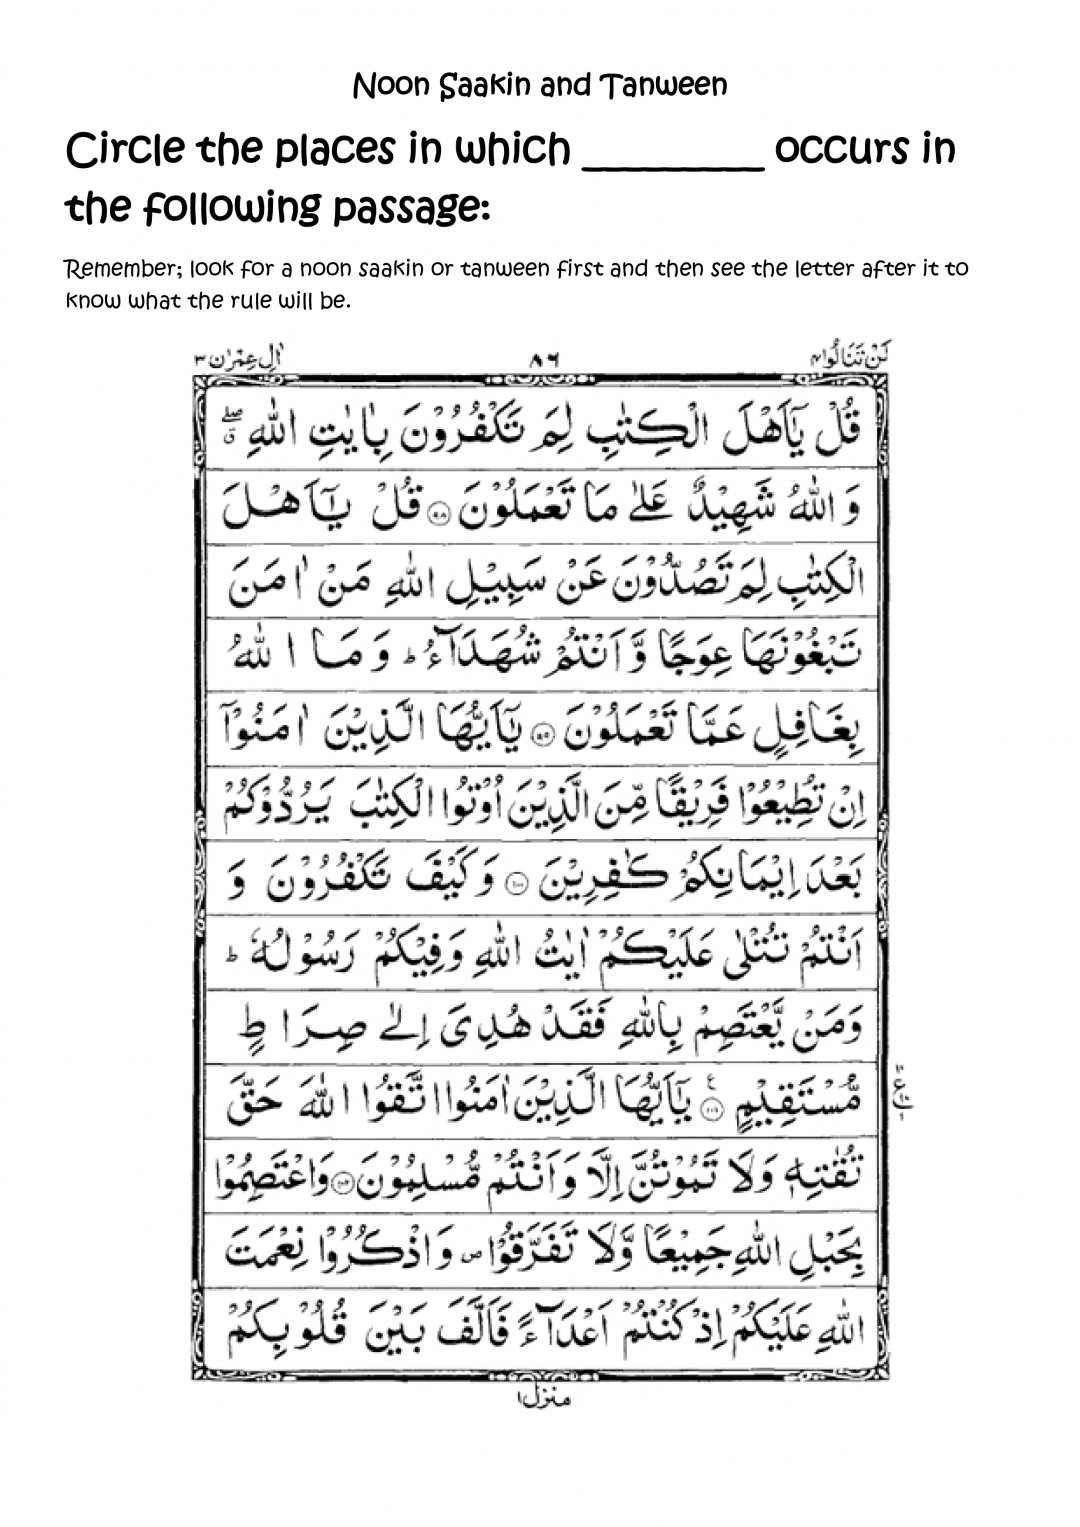 Noon Saakin and Tanween
Circle the places in which _________ occurs in
the following passage:
Remember; look for a noon saakin or tanween first and then see the letter after it to
know what the rule will be.
لَنْ تَنَالُوا ۴ ٨٦ اٰلِ عِمْرٰن ٣
قُلْ يٰٓاَهْلَ الْكِتٰبِ لِمَ تَكْفُرُوْنَ بِاٰيٰتِ اللّٰهِ ۖق
وَ اللّٰهُ شَهِيْدٌ عَلٰى مَا تَعْمَلُوْنَ ۹۸ قُلْ يٰٓاَهْلَ
الْكِتٰبِ لِمَ تَصُدُّوْنَ عَنْ سَبِيْلِ اللّٰهِ مَنْ اٰمَنَ
تَبْغُوْنَهَا عِوَجًا وَّاَنْتُمْ شُهَدَآءُ ؕ وَمَا اللّٰهُ
بِغَافِلٍ عَمَّا تَعْمَلُوْنَ ۹۹ يٰٓاَيُّهَا الَّذِيْنَ اٰمَنُوْٓا
اِنْ تُطِيْعُوْا فَرِيْقًا مِّنَ الَّذِيْنَ اُوْتُوا الْكِتٰبَ يَرُدُّوْكُمْ
بَعْدَ اِيْمَانِكُمْ كٰفِرِيْنَ ۱۰۰ وَكَيْفَ تَكْفُرُوْنَ وَ
اَنْتُمْ تُتْلٰى عَلَيْكُمْ اٰيٰتُ اللّٰهِ وَفِيْكُمْ رَسُوْلُهٗ ؕ
وَمَنْ يَّعْتَصِمْ بِاللّٰهِ فَقَدْ هُدِىَ اِلٰى صِرَاطٍ
مُّسْتَقِيْمٍ ۱۰۱ يٰٓاَيُّهَا الَّذِيْنَ اٰمَنُوا اتَّقُوا اللّٰهَ حَقَّ
تُقٰتِهٖ وَلَا تَمُوْتُنَّ اِلَّا وَاَنْتُمْ مُّسْلِمُوْنَ ۱۰۲ وَاعْتَصِمُوْا
بِحَبْلِ اللّٰهِ جَمِيْعًا وَّلَا تَفَرَّقُوْا ص وَاذْكُرُوْا نِعْمَتَ
اللّٰهِ عَلَيْكُمْ اِذْ كُنْتُمْ اَعْدَآءً فَاَلَّفَ بَيْنَ قُلُوْبِكُمْ
منزل ۱